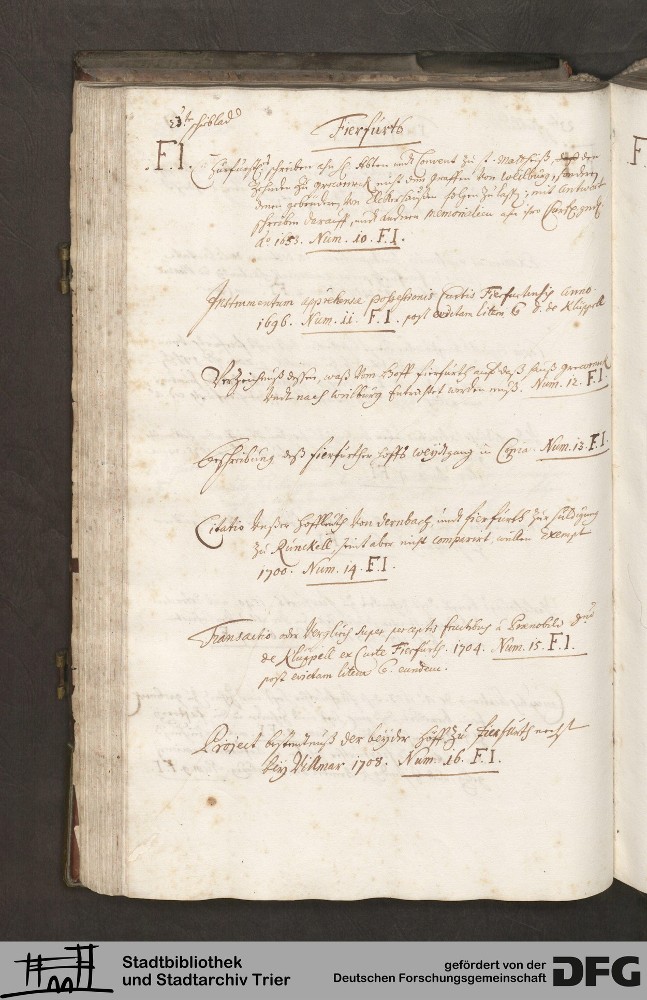 23te schiblad
Fierfürth
F I.
Churfürstl. schreiben ahn H. Abten undt Convent zu St. Matheiß, den
Zehnden zu greveneck nicht dem graffen von Weilburg, sondern
denen gebrüdern von Elkerhausen folgen zu lassen, mit Antwort
schreiben darauff, undt anderen memorialien ahn ihre Churf. gndl.
Ao 1653. Num. 10. F. I.
Instrumentum apprehensae possessionis Curtis Fierfurtensis Anno
1696. Num. 11. F. I. post evictam litem C. D. de Klüppell
Verzeichnuß dessen, waß vom hoff fierfürth auf daß hauß greveneck
undt nach weilburg Entrichtet werden muß. Num. 12. F. I.
beschreibung deß fierfürther hoffs weydtgang in Copia. Num. 13. F. I.
Citatio unßer Hoffleuth von dernbach, undt fierfürth zur huldigung
zu Runckell, seint aber nicht comparirt, weillen Exempt
1700. Num. 14. F. I.
Transactio oder Verglich super perceptis fructibus à Praenobili Dno
de Klüppell ex Curte Fierfürth. 1704. Num. 15. F. I.
post evictam litem C. eundem.
Project bestendtnuß der beyder höff zu fierfürth nechst
bey Villmar 1708. Num. 16. F. I.
F
Stadtbibliothek
und Stadtarchiv Trier
gefördert von der
Deutschen Forschungsgemeinschaft
DFG